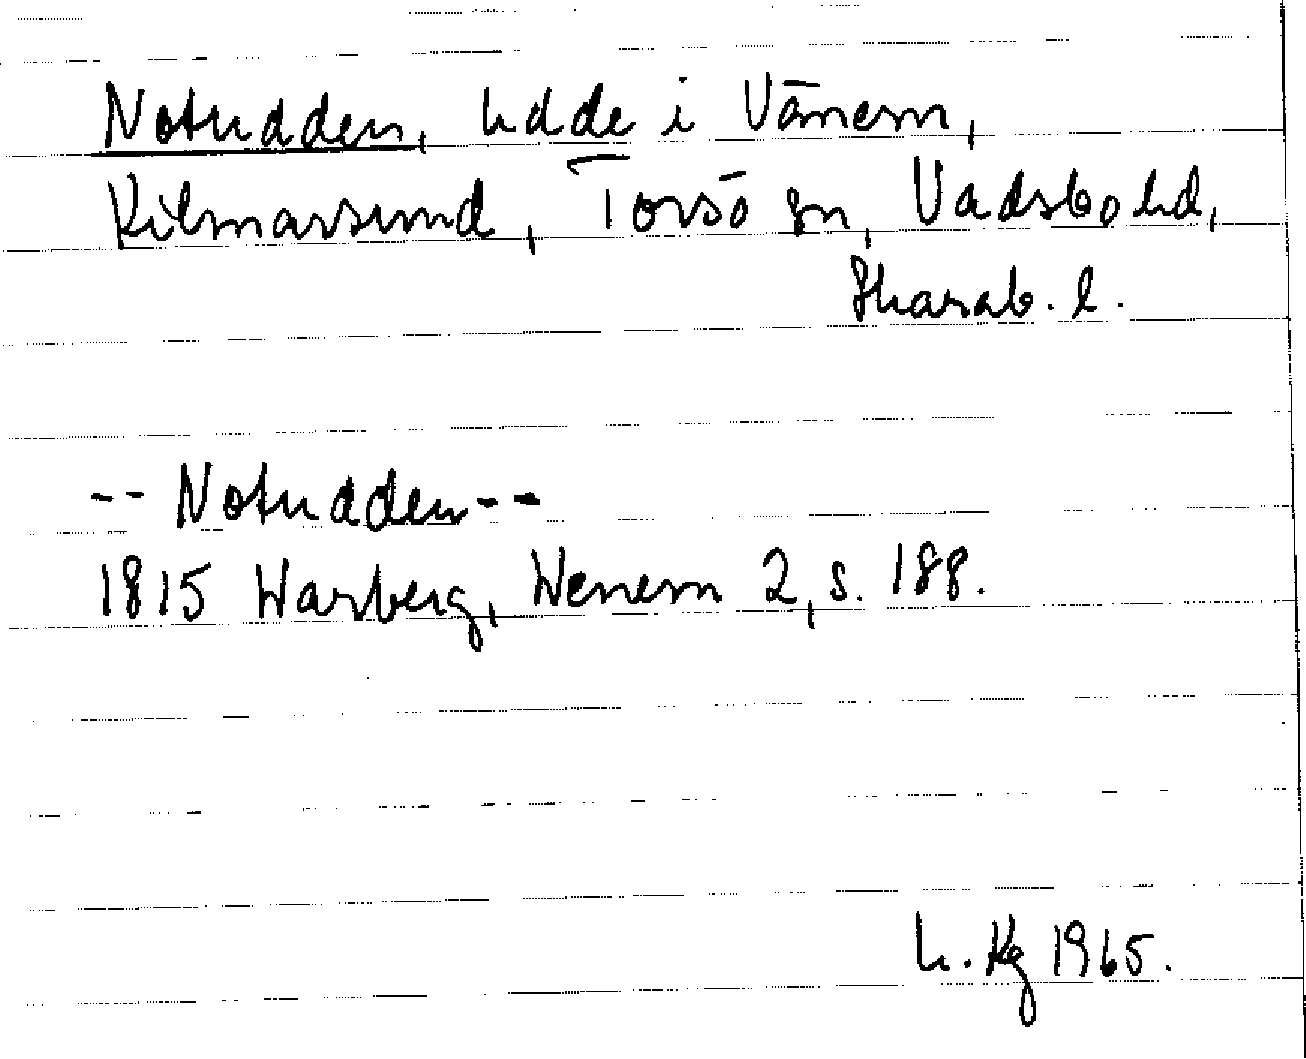 Notudden, udde i Vänern,
Kilmarsund, Torsö sn, Vadsbo hd,
Skarab. l.
-- Notudden --
1815 Warberg, Wenern 2, s. 188.
L. Kg 1965.